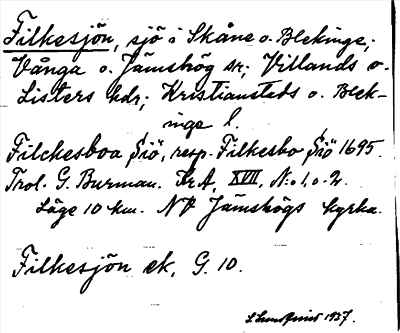 Filkesjön, sjö i Skåne o. Blekinge;
Vånga o. Jämshög sk; Villands o.
Listers hdr; Kristianstads o. Blek-
inge l.
Filchesboa Siö, resp. Filkesbo Siö 1695.
Trol. G. Burman. Kr A, XVII, N:o 1, o. 2.
Läge 10 km. NV Jämshögs kyrka.
Filkesjön ek. G. 10.
1937.